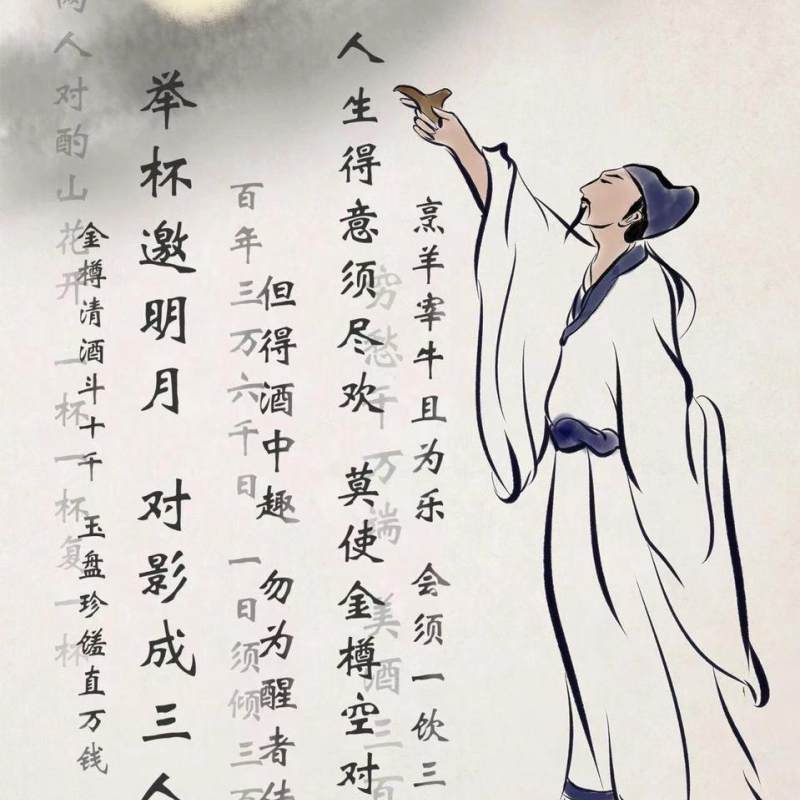 烹羊宰牛且为乐 会须一饮三
穷愁千万端 美酒三百
人生得意须尽欢 莫使金樽空对
但得酒中趣 勿为醒者传
百年三万六千日 一日须倾三百
举杯邀明月 对影成三人
金樽清酒斗十千 玉盘珍馐直万钱
两人对酌山花开 一杯一杯复一杯